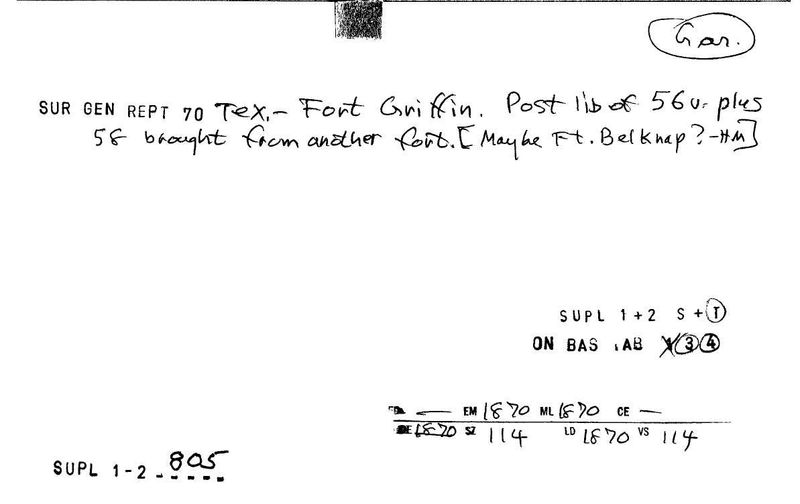 Gar.
SUR GEN REPT 70 Tex.- Fort Griffin. Post lib of 56 v. plus
58 brought from another fort. [Maybe Ft. Belknap? -HM]
SUPL 1+2 S+T
ON BAS LAB X 3 4
— EM 1870 ML 1870 CE —
DE 1870 SZ 114 LD 1870 VS 114
SUPL 1-2 - 805